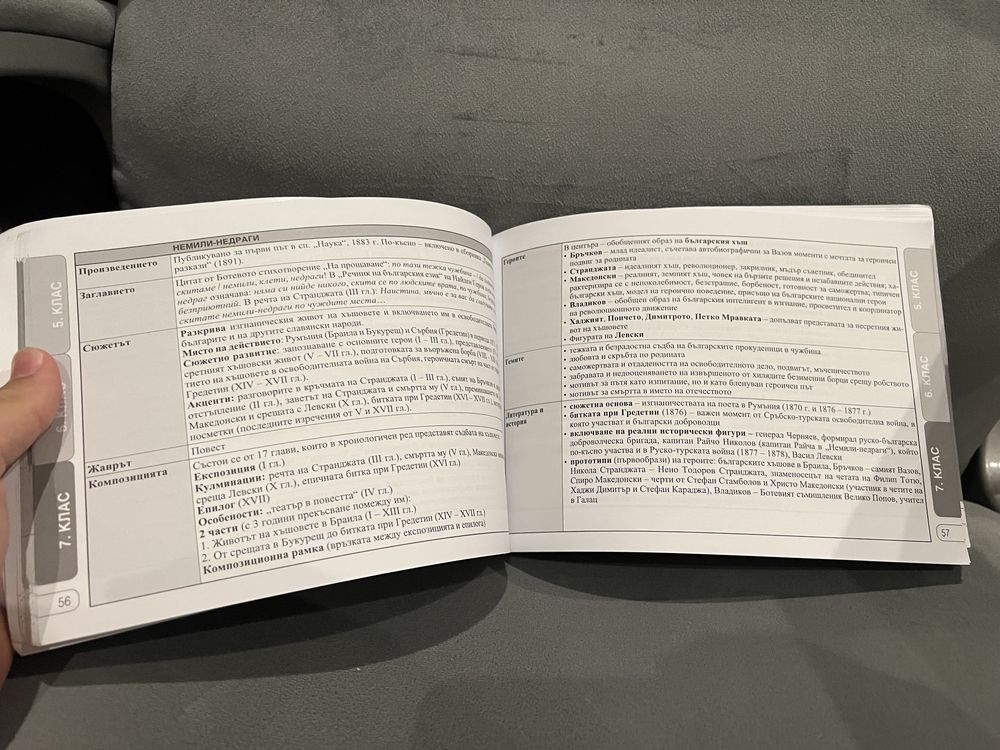 НЕМИЛИ-НЕДРАГИ
Произведението
Публикувано за първи път в сп. „Наука“, 1883 г. По-късно – включено в сборника
разкази“ (1891).
Заглавието
Цитат от Ботевото стихотворение „На прощаване“: по тази тежка чужбина
скитаме! немили, клети, недраги! В „Речник на българския език“ на Найден Геров
недраг означава: няма си нийде никого, скита се по людските врата, по чужбина,
безприютний. В речта на Странджата (III гл.): Наистина, мъчно е за вас да
скитате немили-недраги по чуждите места…
Сюжетът
Разкрива изгнаническия живот на хъшовете и включването им в освободителните
българите и на другите славянски народи.
Място на действието: Румъния (Браила и Букурещ) и Сърбия (Гредетин) в периода
Сюжетно развитие: запознаване с основните герои (I – III гл.), представяне
сретният хъшовски живот (V – VII гл.), подготовката за въоръжена борба (VII –
тието на хъшовете в освободителната война на Сърбия, героичната смърт на част от
Гредетин (XIV – XVII гл.).
Акценти: разговорите в кръчмата на Странджата (I – III гл.), сънят на Бръчков и
отстъпление (II гл.), заветът на Странджата и смъртта му (V гл.),
Македонски и срещата с Левски (X гл.), битката при Гредетин (XVI – XVII гл.),
носметки (последните изречения от V и XVII гл.).
Жанрът
Повест
Композицията
Състои се от 17 глави, които в хронологичен ред представят съдбата на хъшовете.
Експозиция (I гл.)
Кулминации: речта на Странджата (III гл.), смъртта му (V гл.), Македонски
среща Левски (X гл.), епичната битка при Гредетин (XVI гл.)
Епилог (XVII)
Особености: „театър в повестта“ (IV гл.)
2 части (с 3 години прекъсване помежду им):
1. Животът на хъшовете в Браила (I – XIII гл.)
2. От срещата в Букурещ до битката при Гредетин (XIV – XVII гл.)
Композиционна рамка (връзката между експозицията и епилога)
5. КЛАС
6. КЛАС
7. КЛАС
56
Героите
В центъра – обобщеният образ на българския хъш
• Бръчков – млад идеалист, съчетава автобиографични за Вазов моменти с мечтата за героичен
подвиг за родината
• Странджата – идеалният хъш, революционер, закрилник, мъдър съветник, обединител
• Македонски – реалният, земният хъш, човек на бързите решения и незабавните действия; ха-
рактеризира се с непоколебимост, безстрашие, борбеност, готовност за саможертва; типичен
български хъш, модел на героично поведение, присъщо на българските национални герои
• Владиков – обобщен образ на българския интелигент в изгнание, просветител и координатор
на революционното движение
• Хаджият, Попчето, Димитрото, Петко Мравката – допълват представата за несретния жи-
вот на хъшовете
• Фигурата на Левски
Темите
• тежката и безрадостна съдба на българските прокуденици в чужбина
• любовта и скръбта по родината
• саможертвата и отдадеността на освободителното дело, подвигът, мъченичеството
• забравата и недооценяването на извършеното от хилядите безименни борци срещу робството
• мотивът за пътя като изпитание, но и като бленуван героичен път
• мотивът за смъртта в името на отечеството
Литература и
история
• сюжетна основа – изгнаничествата на поета в Румъния (1870 г. и 1876 – 1877 г.)
• битката при Гредетин (1876) – важен момент от Сръбско-турската освободителна война, в
която участват и български доброволци
• включване на реални исторически фигури – генерал Черняев, формирал руско-българска
доброволческа бригада, капитан Райчо Николов (капитан Райча в „Немили-недраги“), който
по-късно участва и в Руско-турската война (1877 – 1878), Васил Левски
• прототипи (първообрази) на героите: българските хъшове в Браила, Бръчков – самият Вазов,
Никола Странджата – Нено Тодоров Странджата, знаменосецът на четата на Филип Тотю,
Спиро Македонски – черти от Стефан Стамболов и Христо Македонски (участник в четите на
Хаджи Димитър и Стефан Караджа), Владиков – Ботевият съмишленик Велико Попов, учител
в Галац
5. КЛАС
6. КЛАС
7. КЛАС
57